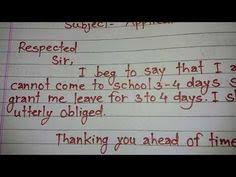 Subject:- Applicat
Respected
Sir,
I beg to say that I a
cannot come to school 3-4 days s
grant me leave for 3 to 4 days. I s
utterly obliged.
Thanking you ahead of time